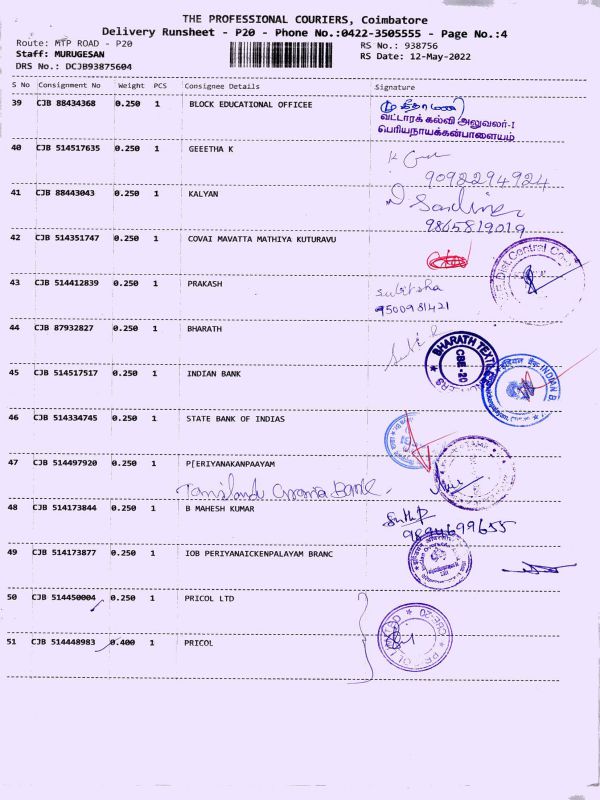 THE PROFESSIONAL COURIERS, Coimbatore
Delivery Runsheet - P20 - Phone No.:0422-3505555 - Page No.:4
Route: MTP ROAD - P20 RS No.: 938756
Staff: MURUGESAN RS Date: 12-May-2022
DRS No.: DCJB93875604
S No Consignment No Weight PCS Consignee Details Signature
39 CJB 88434368 0.250 1 BLOCK EDUCATIONAL OFFICEE
வட்டாரக் கல்வி அலுவலர்-I
பெரியநாயக்கன்பாளையம்
40 CJB 514517635 0.250 1 GEEETHA K
90982294924
41 CJB 88443043 0.250 1 KALYAN
9865819019
42 CJB 514351747 0.250 1 COVAI MAVATTA MATHIYA KUTURAVU
Dist. Central Co
43 CJB 514412839 0.250 1 PRAKASH
9500981421
44 CJB 87932827 0.250 1 BHARATH
BHARATH TEXTILE
CBE-20
45 CJB 514517517 0.250 1 INDIAN BANK
इंडियन बैंक INDIAN B
46 CJB 514334745 0.250 1 STATE BANK OF INDIAS
47 CJB 514497920 0.250 1 P[ERIYANAKANPAAYAM
Tamilnadu Grama Bank.
48 CJB 514173844 0.250 1 B MAHESH KUMAR
9894699655
49 CJB 514173877 0.250 1 IOB PERIYANAICKENPALAYAM BRANC
50 CJB 514450004 0.250 1 PRICOL LTD
51 CJB 514448983 0.400 1 PRICOL
PRICOL LIMITED CBE-20